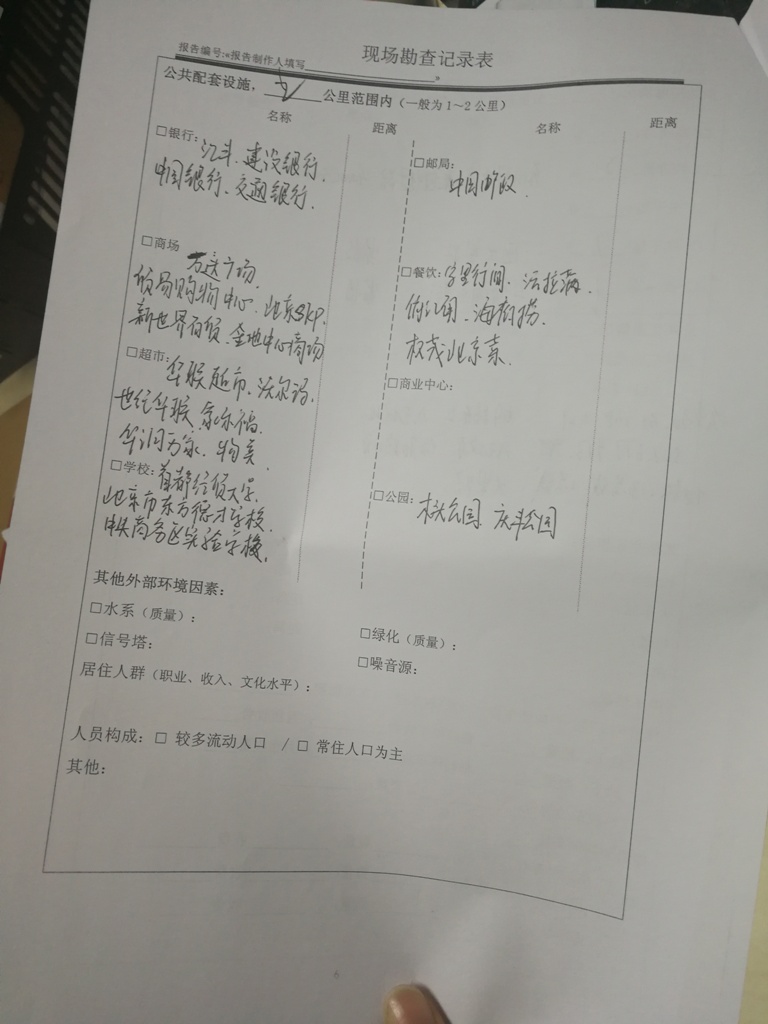 现场勘查记录表
报告编号:«报告制作人填写»
公共配套设施，2公里范围内（一般为1～2公里）
名称 距离 名称 距离
□银行: 汇丰、建设银行、
中国银行、交通银行、
□邮局:
中国邮政、
□商场 万达广场、
贸易购物中心、北京SKP、
新世界百货、金地中心商场
□餐饮: 字里行间、
海底捞、
权茂北京菜、
□超市: 华联超市、沃尔玛、
世纪华联、家乐福、
华润万家、物美、
□商业中心:
□学校: 首都经贸大学、
北京市东方德才学校、
中央商务区实验学校、
□公园: 公园、庆丰公园
其他外部环境因素:
□水系（质量）: □绿化（质量）:
□信号塔: □噪音源:
居住人群（职业、收入、文化水平）:
人员构成: □ 较多流动人口 / □ 常住人口为主
其他:
6